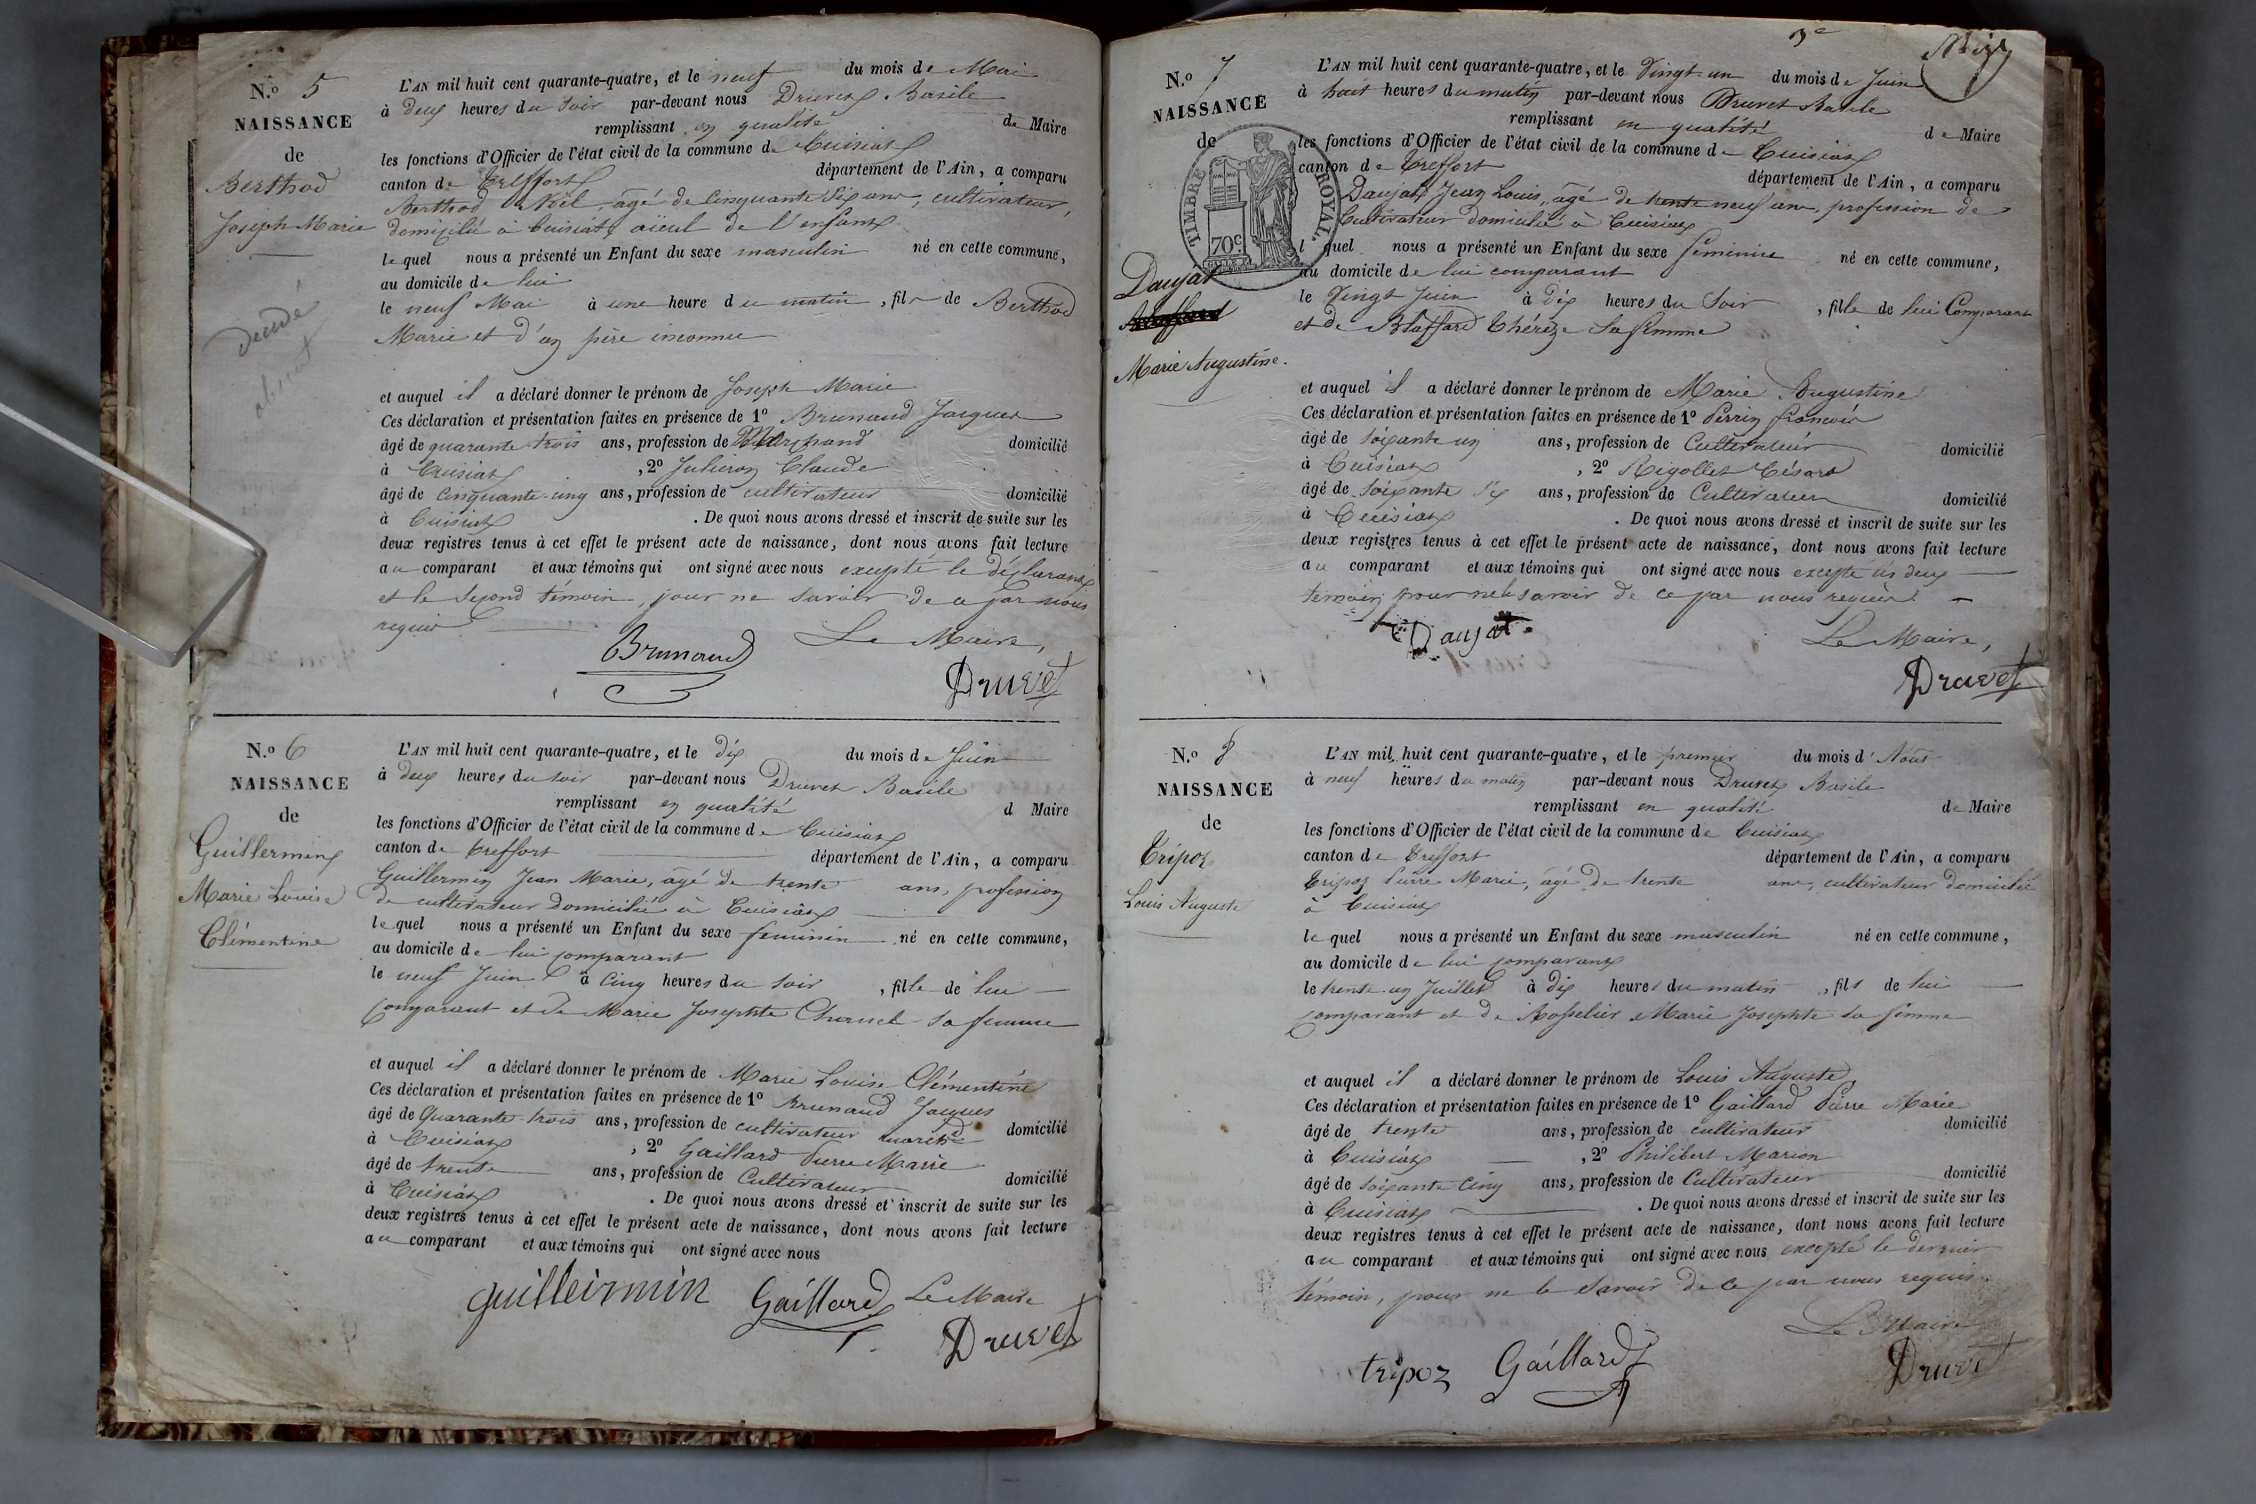 N.º 5
NAISSANCE
de
Berthod
Joseph Marie
décédé
L'AN mil huit cent quarante-quatre, et le neuf du mois de Mai
à deux heures du soir par-devant nous Druvet Basile
remplissant en qualité de Maire
les fonctions d'Officier de l'état civil de la commune de Cuisiat
canton de Treffort département de l'Ain, a comparu
Berthod Noël, âgé de Cinquante six ans, cultivateur,
domicilié à Cuisiat, aïeul de l'enfant
lequel nous a présenté un Enfant du sexe masculin né en cette commune,
au domicile de lui
le neuf Mai à une heure du matin, fils de Berthod
Marie et d'un père inconnu
et auquel il a déclaré donner le prénom de Joseph Marie
Ces déclaration et présentation faites en présence de 1º Brunaud Jacques
âgé de quarante trois ans, profession de Marchand domicilié
à Cuisiat, 2º Julieron Claude
âgé de Cinquante-un ans, profession de cultivateur domicilié
à Cuisiat. De quoi nous avons dressé et inscrit de suite sur les
deux registres tenus à cet effet le présent acte de naissance, dont nous avons fait lecture
au comparant et aux témoins qui ont signé avec nous excepté le déclarant
et le second témoin, pour ne savoir de ce par nous
requis
Le Maire,
Brunaud
Druvet
N.º 6
NAISSANCE
de
Guillermin
Marie Louise
Clémentine
L'AN mil huit cent quarante-quatre, et le dix du mois de Juin
à deux heures du soir par-devant nous Druvet Basile
remplissant en qualité d Maire
les fonctions d'Officier de l'état civil de la commune de Cuisiat
canton de Treffort département de l'Ain, a comparu
Guillermin Jean Marie, âgé de trente ans, profession
de cultivateur domicilié à Cuisiat
lequel nous a présenté un Enfant du sexe feminin né en cette commune,
au domicile de lui comparant
le neuf Juin à cinq heures du soir, fille de lui
comparant et de Marie Josephte Charnel sa femme
et auquel il a déclaré donner le prénom de Marie Louise Clémentine
Ces déclaration et présentation faites en présence de 1º Brunaud Jacques
âgé de Quarante-trois ans, profession de cultivateur march.d domicilié
à Cuisiat, 2º Gaillard Pierre Marie
âgé de trente ans, profession de Cultivateur domicilié
à Cuisiat. De quoi nous avons dressé et inscrit de suite sur les
deux registres tenus à cet effet le présent acte de naissance, dont nous avons fait lecture
au comparant et aux témoins qui ont signé avec nous
guilleirmin Gaillard Le Maire
Druvet
3e
N.º 7
NAISSANCE
de
TIMBRE ROYAL.
70 c.
Daujat
Marie Augustine.
L'AN mil huit cent quarante-quatre, et le Vingt-un du mois de Juin
à huit heures du matin par-devant nous Druvet Basile
remplissant en qualité de Maire
les fonctions d'Officier de l'état civil de la commune de Cuisiat
canton de Treffort département de l'Ain, a comparu
Daujat Jean Louis, âgé de trente neuf ans, profession de
Cultivateur domicilié à Cuisiat
l quel nous a présenté un Enfant du sexe féminine né en cette commune,
au domicile de lui comparant
le Vingt Juin à dix heures du Soir, fille de lui Comparant
et de Blaffard Thérèze sa femme
et auquel il a déclaré donner le prénom de Marie Augustine
Ces déclaration et présentation faites en présence de 1º Perrin francois
âgé de soixante un ans, profession de Cultivateur domicilié
à Cuisiat, 2º Rigollet César
âgé de soixante six ans, profession de Cultivateur domicilié
à Cuisiat. De quoi nous avons dressé et inscrit de suite sur les
deux registres tenus à cet effet le présent acte de naissance, dont nous avons fait lecture
au comparant et aux témoins qui ont signé avec nous excepté les deux
témoins pour ne le savoir de ce par nous requis
Daujat
Le Maire,
Druvet
N.º 8
NAISSANCE
de
Tripoz
Louis Auguste
L'AN mil huit cent quarante-quatre, et le premier du mois d'Aout
à neuf heures du matin par-devant nous Druvet Basile
remplissant en qualité de Maire
les fonctions d'Officier de l'état civil de la commune de Cuisiat
canton de Treffort département de l'Ain, a comparu
Tripoz Pierre Marie, âgé de trente ans, cultivateur domicilié
à Cuisiat
lequel nous a présenté un Enfant du sexe masculin né en cette commune,
au domicile de lui comparant
le trente-un Juillet à dix heures du matin, fils de lui
comparant et de Rosselier Marie Josephte sa femme
et auquel il a déclaré donner le prénom de Louis Auguste
Ces déclaration et présentation faites en présence de 1º Gaillard Pierre Marie
âgé de trente ans, profession de cultivateur domicilié
à Cuisiat, 2º Philibert Marion
âgé de soixante cinq ans, profession de Cultivateur domicilié
à Cuisiat. De quoi nous avons dressé et inscrit de suite sur les
deux registres tenus à cet effet le présent acte de naissance, dont nous avons fait lecture
au comparant et aux témoins qui ont signé avec nous excepté le dernier
témoin, pour ne le savoir de ce par nous requis
Le Maire
tripoz Gaillard Druvet